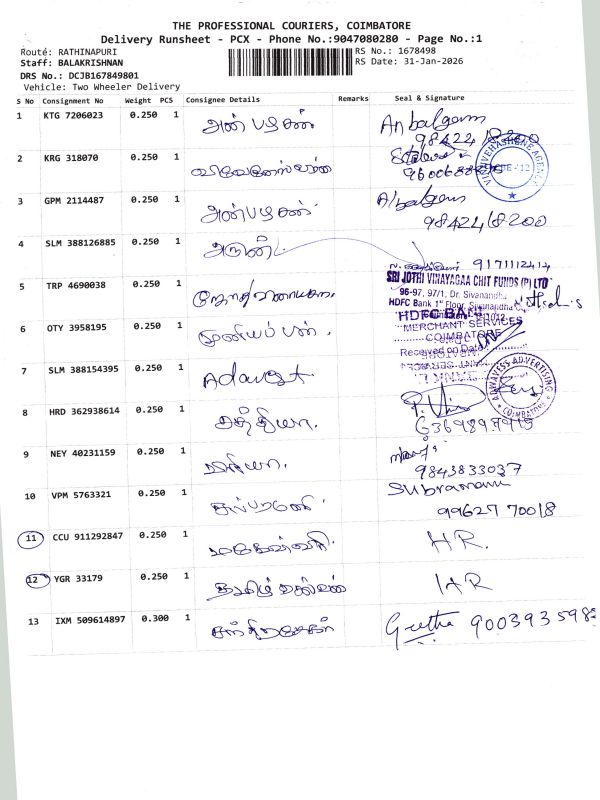 THE PROFESSIONAL COURIERS, COIMBATORE
Delivery Runsheet - PCX - Phone No.:9047080280 - Page No.:1
Route: RATHINAPURI
RS No.: 1678498
Staff: BALAKRISHNAN
RS Date: 31-Jan-2026
DRS No.: DCJB167849801
Vehicle: Two Wheeler Delivery
S No Consignment No Weight PCS Consignee Details Remarks Seal & Signature
1 KTG 7206023 0.250 1 அன்பழகன் Anbalagan
98422 18200
2 KRG 318070 0.250 1
3 GPM 2114487 0.250 1 அன்பழகன்
98424 18200
4 SLM 388126885 0.250 1 9171112414
5 TRP 4690038 0.250 1 SRI JOTHI VINAYAGAA CHIT FUNDS (P) LTD
96-97, 97/1, Dr. Sivanandha
HDFC Bank 1st Floor, Sivanandha
6 OTY 3958195 0.250 1 முனியப்பன் HDFC BANK
MERCHANT SERVICES
COIMBATORE
Received on Date
7 SLM 388154395 0.250 1 ADWAVESS ADVERTISING
COIMBATORE
8 HRD 362938614 0.250 1 சத்தியா
9 NEY 40231159 0.250 1 பிரியா
9843833037
10 VPM 5763321 0.250 1 சுப்பரமணி Subramani
99627 70018
11 CCU 911292847 0.250 1 மகேஸ்வரி HR
12 YGR 33179 0.250 1 தமிழ் செல்வன் HR
13 IXM 509614897 0.300 1 சந்திரசேகர் Geetha 900393598